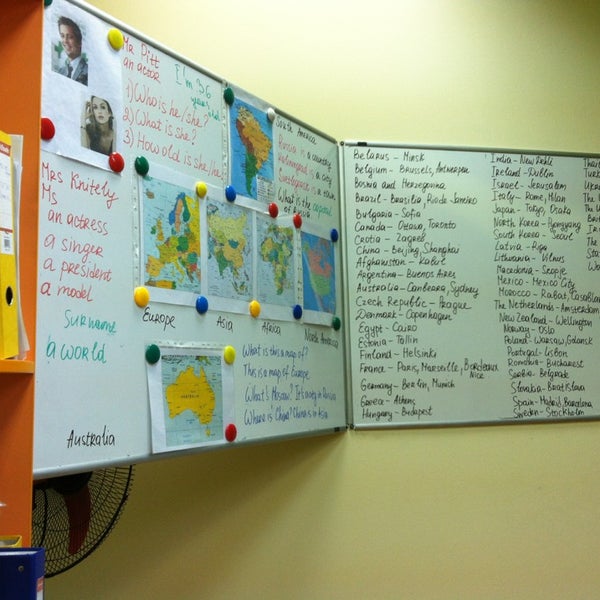 Mr Pitt
an actor
I'm 36
years old
1) Who is he/she?
2) What is she?
3) How old is she/he
Mrs Knitely
Ms
an actress
a singer
a president
a model
Surname
a world
Australia
South America
Russia is a country
is a city
is a town
What is the capital
of Russia
Europe
Asia
Africa
North America
What is this a map of?
This is a map of Europe
What's Moscow? It's a city in Russia
Where is China? China is in Asia
Belarus - Minsk
Belgium - Brussels, Antwerpen
Bosnia and Herzegovina
Brazil - Brasilia, Rio de Janeiro
Bulgaria - Sofia
Canada - Ottawa, Toronto
Croatia - Zagreb
China - Beijing, Shanghai
Afghanistan - Kabul
Argentina - Buenos Aires
Australia - Canberra, Sydney
Czech Republic - Prague
Denmark - Copenhagen
Egypt - Cairo
Estonia - Tallin
Finland - Helsinki
France - Paris, Marseille, Bordeaux
Nice
Germany - Berlin, Munich
Greece - Athens
Hungary - Budapest
India - New Dehli
Ireland - Dublin
Israel - Jerusalem
Italy - Rome, Milan
Japan - Tokyo, Osaka
North Korea - Pyongyang
South Korea - Seoul
Latvia - Riga
Lithuania - Vilnus
Macedonia - Scopje
Mexico - Mexico City
Morocco - Rabat, Casablanca
The Netherlands - Amsterdam
New Zealand - Wellington
Norway - Oslo
Poland - Warsaw, Gdansk
Portugal - Lisbon
Romania - Bucharest
Serbia - Belgrade
Slovakia - Bratislava
Spain - Madrid, Barcelona
Sweden - Stockholm